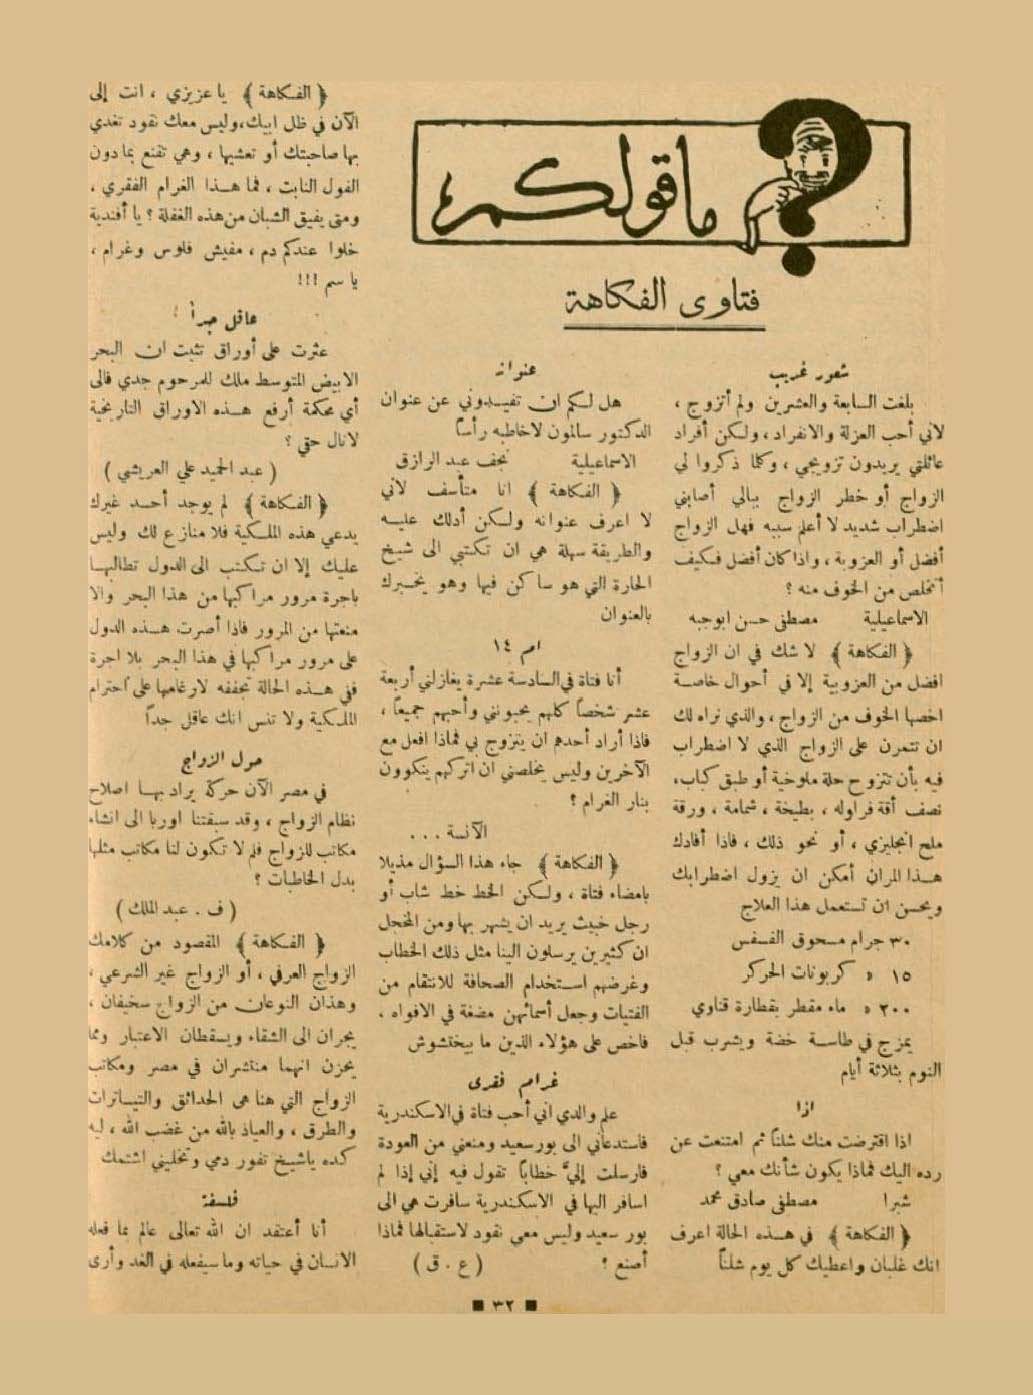 ما قولكم
فتاوى الفكاهة
شعور غريب
بلغت السابعة والعشرين ولم أتزوج ،
لاني أحب العزلة والانفراد ، ولكن أفراد
عائلتي يريدون تزويجي ، وكلما ذكروا لي
الزواج أو خطر الزواج ببالي أصابني
اضطراب شديد لا أعلم سببه فهل الزواج
أفضل أو العزوبة ، واذا كان أفضل فكيف
أتخلص من الخوف منه ؟
الاسماعيلية مصطفى حسن ابوجبه
﴿ الفكاهة ﴾ لا شك في ان الزواج
افضل من العزوبية إلا في أحوال خاصة
اخصها الخوف من الزواج ، والذي نراه لك
ان تتمرن على الزواج الذي لا اضطراب
فيه بأن تتزوج حلة ملوخية أو طبق كباب،
نصف أقة فراوله ، بطيخة ، شمامة ، ورقة
ملح انجليزي ، أو نحو ذلك ، فاذا أفادك
هذا المران أمكن ان يزول اضطرابك
ويحسن ان تستعمل هذا العلاج
٣٠ جرام مسحوق الفسفس
١٥ » كربونات الحركر
٢٠٠ » ماء مقطر بقطارة قناوي
يمزج في طاسة خضة ويشرب قبل
النوم بثلاثة أيام
اذا
اذا اقترضت منك شلنا ثم امتنعت عن
رده اليك فماذا يكون شأنك معي ؟
شبرا مصطفى صادق محمد
﴿ الفكاهة ﴾ في هذه الحالة اعرف
انك غلبان واعطيك كل يوم شلناً
عنوانه
هل لكم ان تفيدوني عن عنوان
الدكتور سالمون لاخاطبه رأساً
الاسماعيلية نجف عبد الرازق
﴿ الفكاهة ﴾ انا متأسف لاني
لا اعرف عنوانه ولكن أدلك عليه
والطريقة سهلة هي ان تكتبي الى شيخ
الحارة التي هو ساكن فيها وهو يخبرك
بالعنوان
ام ١٤
أنا فتاة في السادسة عشرة يغازلني أربعة
عشر شخصاً كلهم يحبونني وأحبهم جميعاً ،
فاذا أراد أحدهم ان يتزوج بي فماذا افعل مع
الآخرين وليس يخلصني ان اتركهم ينكوون
بنار الغرام ؟
الآنسة ...
﴿ الفكاهة ﴾ جاء هذا السؤال مذيلا
بامضاء فتاة ، ولكن الخط خط شاب أو
رجل خبيث يريد ان يشهر بها ومن المخجل
ان كثيرين يرسلون الينا مثل ذلك الخطاب
وغرضهم استخدام الصحافة للانتقام من
الفتيات وجعل أسمائهن مضغة في الافواه ،
فاخص على هؤلاء الذين ما يختشوش
غرام فقرى
علم والدي اني أحب فتاة في الاسكندرية
فاستدعاني الى بورسعيد ومنعني من العودة
فارسلت إليّ خطاباً تقول فيه إني إذا لم
اسافر اليها في الاسكندرية سافرت هي الى
بور سعيد وليس معي نقود لاستقبالها فماذا
أصنع ؟ ( ع . ق )
﴿ الفكاهة ﴾ يا عزيزي ، انت إلى
الآن في ظل ابيك، وليس معك نقود تغدي
بها صاحبتك أو تعشيها ، وهي تقنع بما دون
الفول النابت ، فما هذا الغرام الفقري ،
ومتى يفيق الشبان من هذه الغفلة ؟ يا أفندية
خلوا عندكم دم ، مفيش فلوس وغرام ،
يا سم !!!
عاقل جداً
عثرت على أوراق تثبت ان البحر
الابيض المتوسط ملك للمرحوم جدي فالى
أي محكمة أرفع هذه الاوراق التاريخية
لانال حقي ؟
( عبد الحميد علي العريشي )
﴿ الفكاهة ﴾ لم يوجد أحد غيرك
يدعي هذه الملكية فلا منازع لك وليس
عليك إلا ان تكتب الى الدول تطالبها
باجرة مرور مراكبها من هذا البحر والا
منعتها من المرور فاذا أصرت هذه الدول
على مرور مراكبها في هذا البحر بلا اجرة
ففي هذه الحالة تجففه لارغامها على احترام
الملكية ولا تنس انك عاقل جداً
حول الزواج
في مصر الآن حركة يراد بها اصلاح
نظام الزواج ، وقد سبقتنا اوربا الى انشاء
مكاتب للزواج فلم لا تكون لنا مكاتب مثلها
بدل الخاطبات ؟
( ف . عبد الملك )
﴿ الفكاهة ﴾ المقصود من كلامك
الزواج العرفي ، أو الزواج غير الشرعي ،
وهذان النوعان من الزواج سخيفان ،
يجران الى الشقاء ويسقطان الاعتبار ومما
يحزن انهما منتشران في مصر ومكاتب
الزواج التي هنا هى الحدائق والتياترات
والطرق ، والعياذ بالله من غضب الله ، ليه
كده ياشيخ تفور دمي وتخليني اشتمك
فلسفة
أنا أعتقد ان الله تعالى عالم بما فعله
الانسان في حياته وما سيفعله في الغد وأرى
٣٢